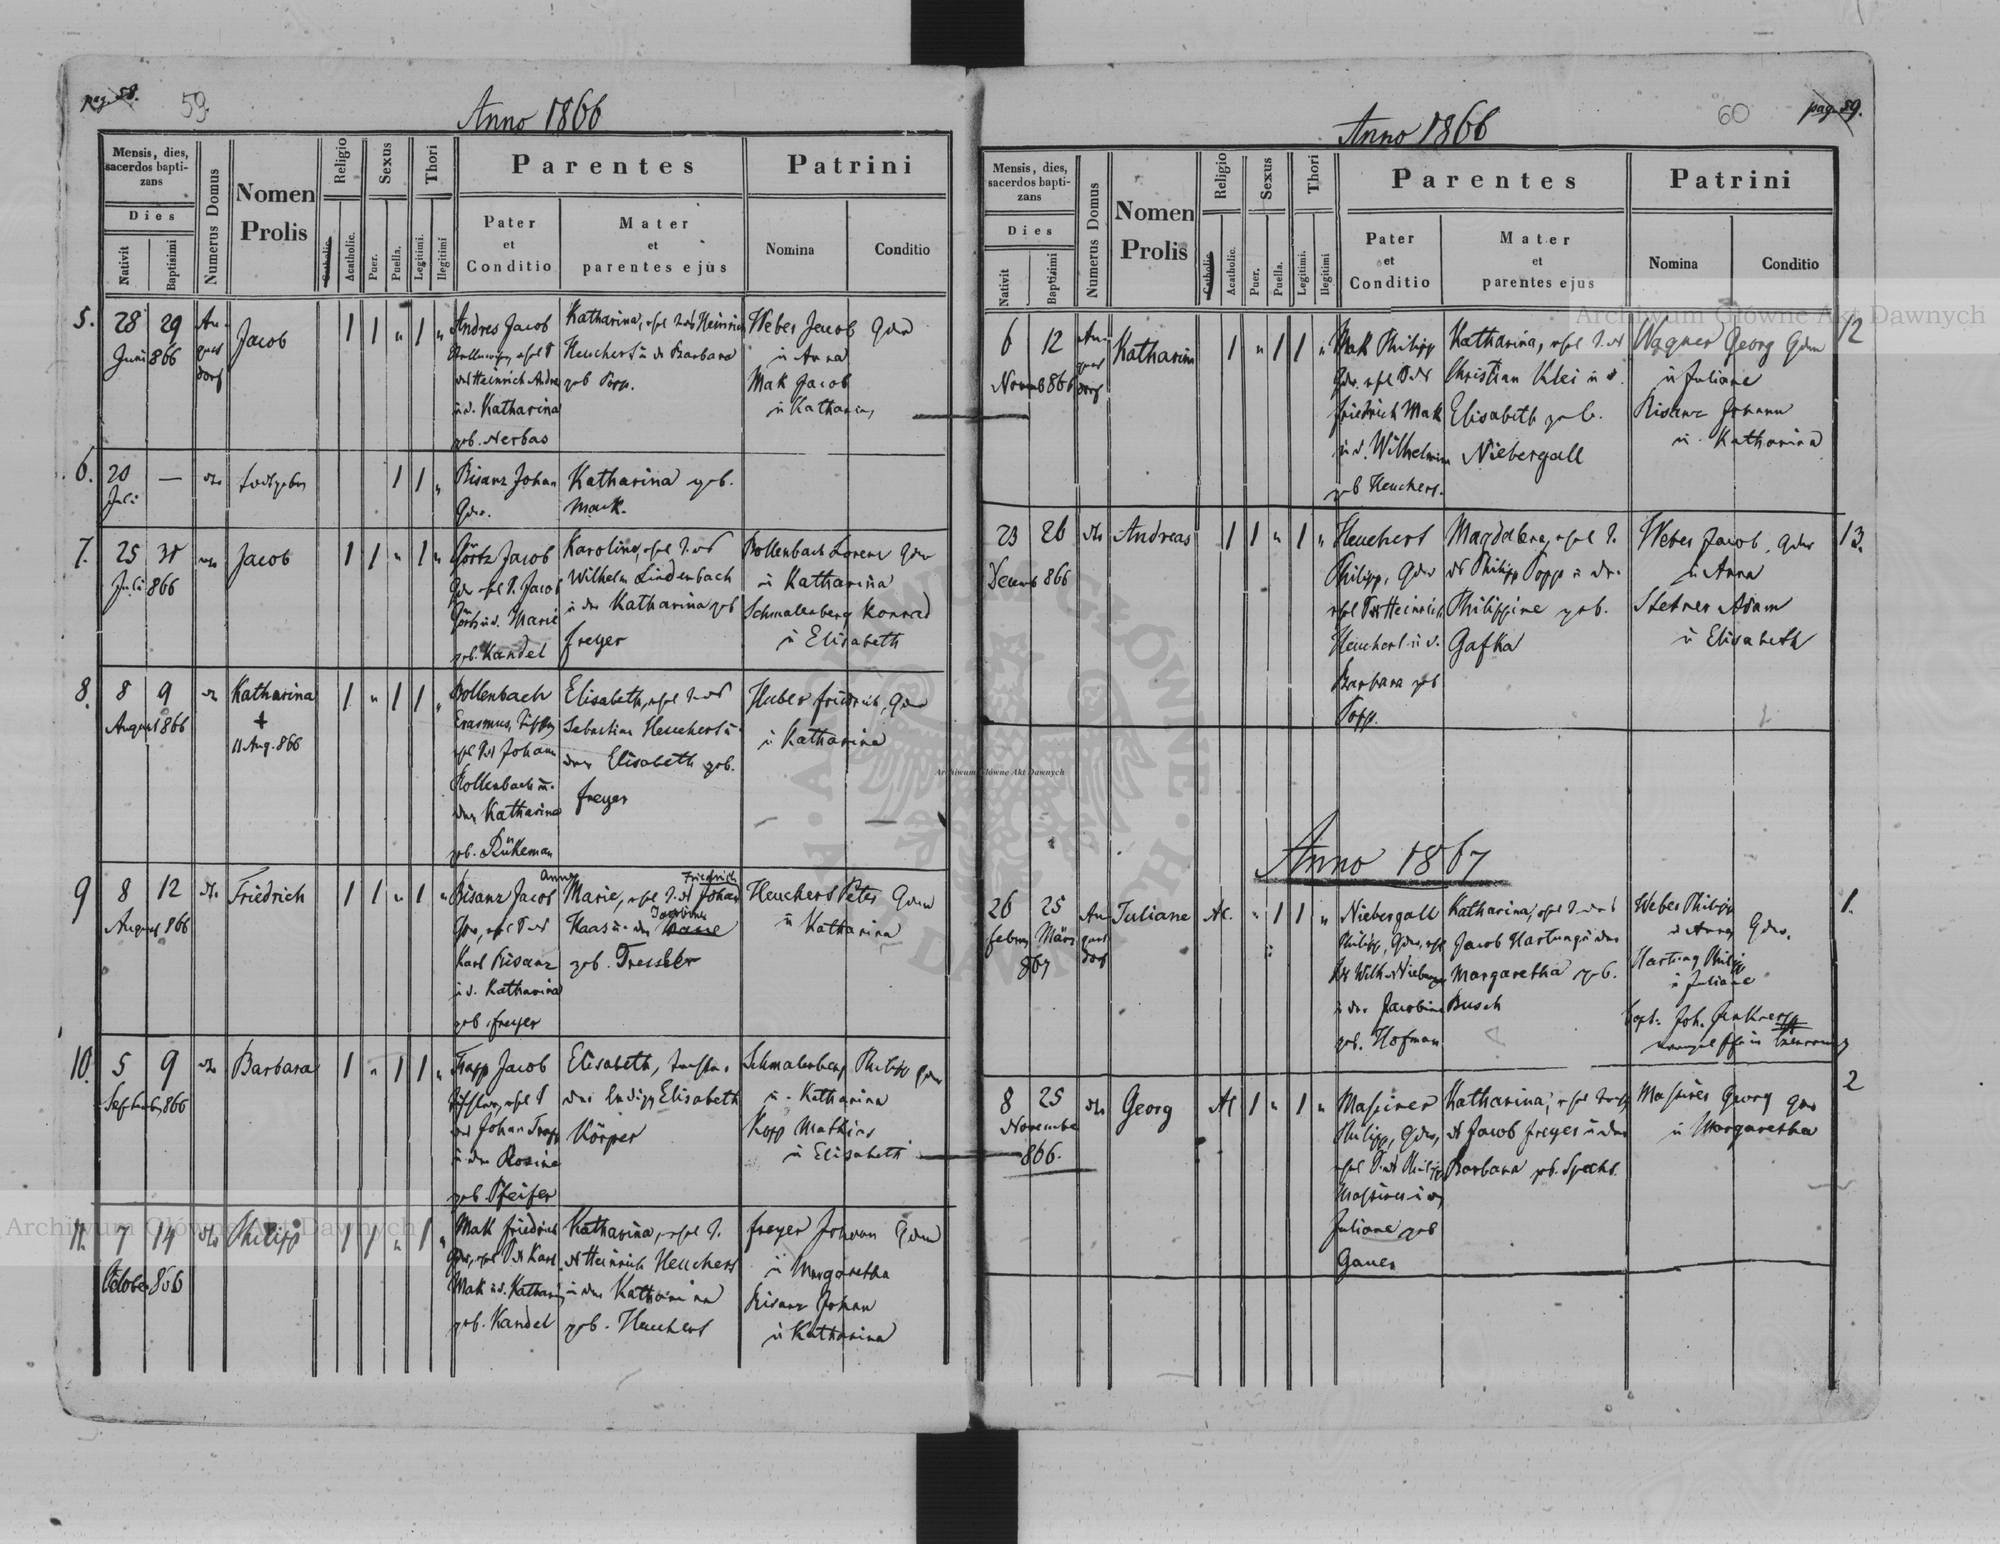 pag. 58.
59.
Anno 1866
Mensis, dies, sacerdos baptizans
Dies
Nativit
Baptisimi
Numerus Domus
Nomen Prolis
Religio
Catholic.
Acatholic.
Sexus
Puer.
Puella.
Thori
Legitimi.
Ilegitimi
Parentes
Pater et Conditio
Mater et parentes ejus
Patrini
Nomina
Conditio
5.
28 29
Juni 866
Jacob
1 1 " 1 "
Andres Jacob
des Heinrich Andre
u. d. Katharina
geb. Nerbas
Katharina, ehel. T. ds Heinrich
Heuchert u. dr Barbara
geb. Popp.
Weber Jacob Gdw
u Anna
Mak Jacob
u Katharina
6.
20 —
Juli
todtgeb
1 1 "
Bisanz Johan
Gdw.
Katharina geb.
Mack.
7.
25 30
Juli 866
Jacob
1 1 " 1 "
Görtz Jacob
Gdw ehel S. Jacob
Görtz u d. Marie
geb. Kandel
Karolina, ehel T. ds
Wilhelm Lindenbach
u der Katharina geb
Freyer
Bollenbach Lorenz Gdw
u Katharina
Schmalenberg Konrad
u Elisabeth
8.
8 9
August 866
Katharina
+
11 Aug. 866
1 " 1 1 "
Bollenbach
Erasmus,
ehel S. ds Johann
Bollenbach u.
der Katharina
geb. Rükeman
Elisabeth, ehel T. ds
Sebastian Heuchert u
der Elisabeth geb.
Freyer
Huber Friedrich, Gdw
u Katharina
9
8 12
August 866
Friedrich
1 1 " 1 "
Bisanz Jacob
Gdw, ehel S. ds
Karl Bisanz
u d. Katharina
geb Freyer
Anna Friedrich
Marie, ehel T. ds Johan
Haas u. der Jacobine
geb. Dressler
Heuchert Peter Gdw
u Katharina
10.
5 9
Septemb 866
Barbara
1 " 1 1 "
Trapp Jacob
des Johan Trapp
u der Rosine
geb Pfeifer
Elisabeth,
der ledigen Elisabeth
Körper
Schmalenberg Philipp Gdw
u. Katharina
Kopp Mathias
u Elisabeth
11.
7 14
October 866
Philipp
1 1 " 1 "
Mak Friedrich
Gdw, ehel S. ds Karl
Mak u d. Katharin
geb. Kandel
Katharina, ehel T.
ds Heinrich Heuchert
u der Katharina
geb. Heuchert
Freyer Johann Gdw
u Margaretha
Bisanz Johan
u Katharina
60
pag. 59.
Anno 1866
Mensis, dies, sacerdos baptizans
Dies
Nativit
Baptisimi
Numerus Domus
Nomen Prolis
Religio
Catholic.
Acatholic.
Sexus
Puer.
Puella.
Thori
Legitimi.
Ilegitimi
Parentes
Pater et Conditio
Mater et parentes ejus
Patrini
Nomina
Conditio
12
6 12
Novemb 866
Katharina
1 " 1 1 "
Mak Philipp
Gdw. ehel S. ds
Friedrich Mak
u d. Wilhelmine
geb Heuchert.
Katharina, ehel T. ds
Christian Klei u d.
Elisabeth geb.
Niebergall
Wagner Georg Gdw
u Juliane
Bisanz Johann
u. Katharina
13.
23 26
Decemb 866
Andreas
1 1 " 1 "
Heuchert
Philipp, Gdw
ehel S. ds Heinrich
Heuchert u d.
Barbara geb
Popp.
Magdalena, ehel T.
ds Philipp Popp u dr.
Philippine geb.
Gafka
Weber Jacob, Gdw
u Anna
Stetner Adam
u Elisabeth
Anno 1867
1.
26 25
Febru März
867
Juliane
Ac. " 1 1 "
Niebergall
Philipp, Gdw, ehel
ds Wilh. Niebergall
u der Jacobine
geb. Hofman
Katharina, ehel T. ds
Jacob Hartung u der
Margaretha geb.
Busch
Weber Philipp
u Anna Gdw.
Hartung Philipp
u Juliane
2
8 25
November
866.
Georg
Ac 1 " 1 "
Massirer
Philipp, Gdw,
ehel S. ds Philipp
Massirer u d.
Juliane geb
Gauer
Katharina, ehel Tocht
ds Jacob Freyer u der
Barbara geb. Specht.
Massirer Georg Gdw
u Margaretha
Archiwum Główne Akt Dawnych
Archiwum Główne Akt Dawnych
Archiwum Główne Akt Dawnych